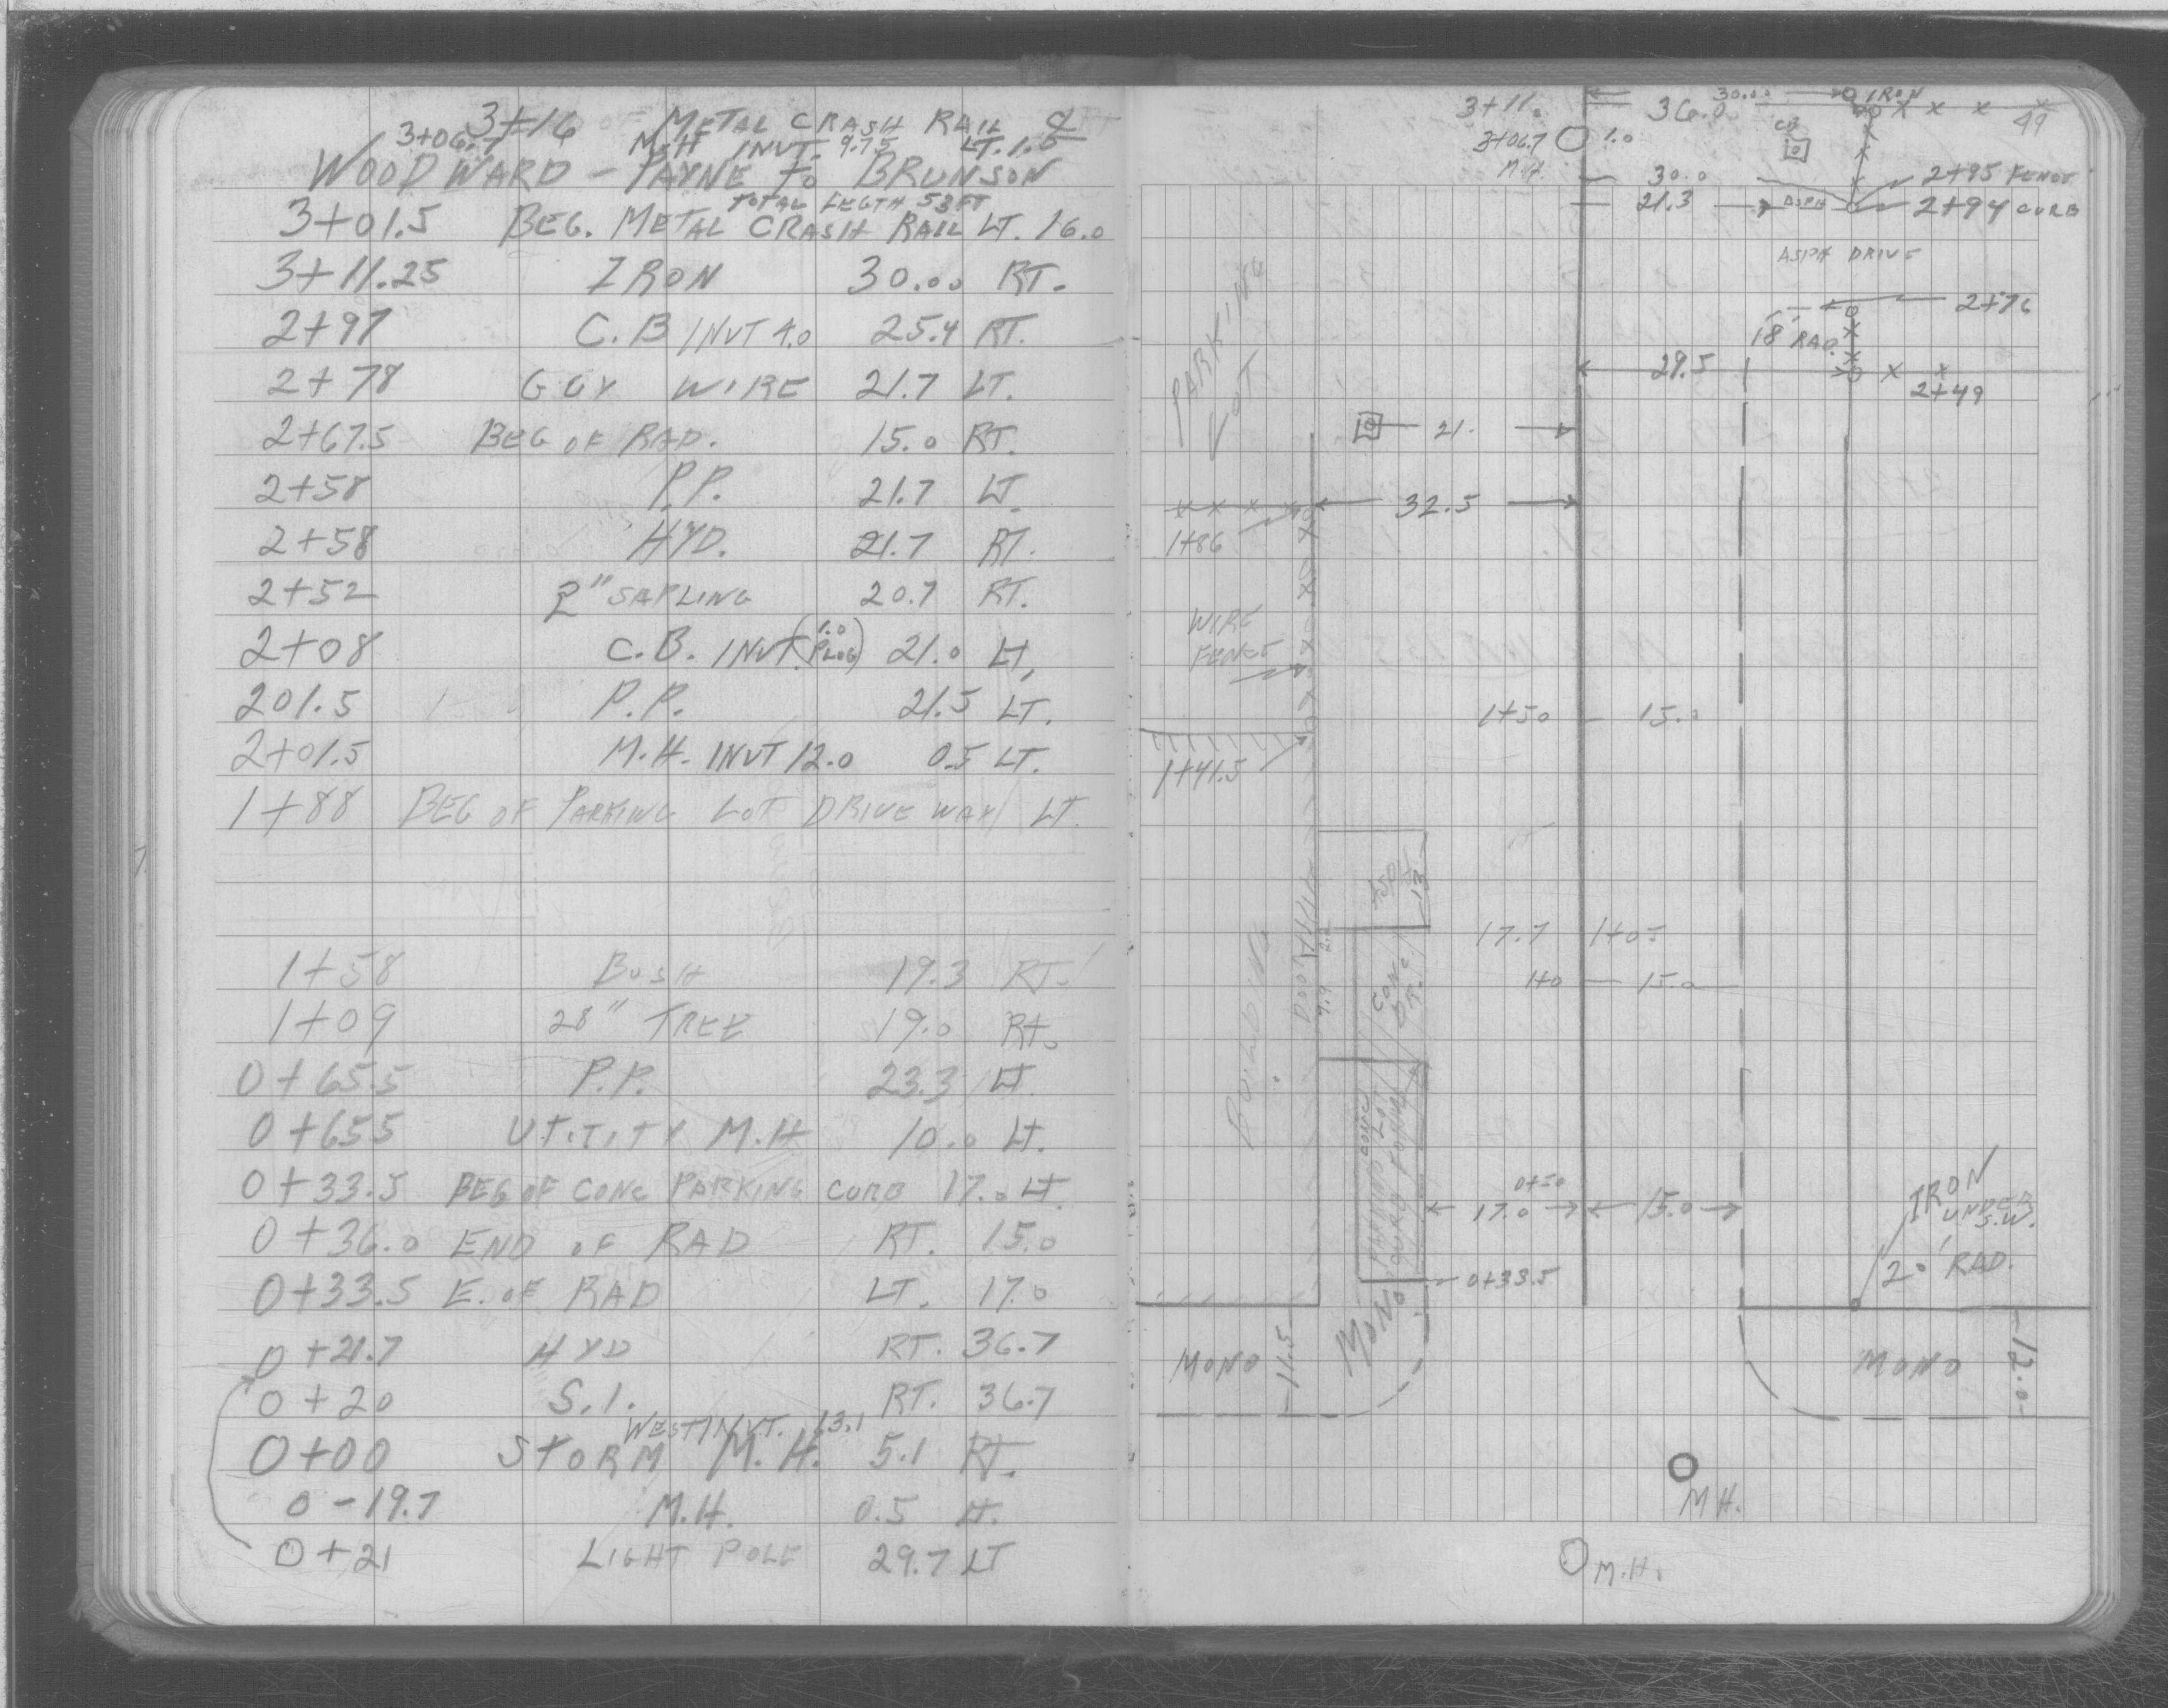 3+16 METAL CRASH RAIL ℄
3+06.7 M.H INVT. 9.75 LT. 1.0
WOODWARD - PAYNE TO BRUNSON
TOTAL LEGTH 53 FT
3+01.5 BEG. METAL CRASH RAIL LT. 16.0
3+11.25 IRON 30.00 RT.
2+97 C.B INVT 4.0 25.4 RT.
2+78 GUY WIRE 21.7 LT.
2+67.5 BEG OF RAD. 15.0 RT.
2+58 P.P. 21.7 LT.
2+58 HYD. 21.7 RT.
2+52 2" SAPLING 20.7 RT.
2+08 C.B. INVT. (1.0 PLUG) 21.0 LT.
201.5 P.P. 21.5 LT.
2+01.5 M.H. INVT 12.0 0.5 LT.
1+88 BEG OF PARKING LOT DRIVE WAY LT.
1+58 BUSH 19.3 RT.
1+09 28" TREE 19.0 RT.
0+65.5 P.P. 23.3 LT.
0+655 UTITITY M.H 10.0 LT.
0+33.5 BEG OF CONC PARKING CURB 17.0 LT.
0+36.0 END OF RAD RT. 15.0
0+33.5 E. OF RAD LT. 17.0
0+21.7 HYD RT. 36.7
0+20 S.I. RT. 36.7
WEST INVT. 13.1
0+00 STORM M.H. 5.1 RT.
0-19.7 M.H. 0.5 LT.
0+21 LIGHT POLE 29.7 LT
3+11. 30.00 IRON
36.0 49
3+06.7 1.0 CB
M.H.
30.0 2+95 FENCE
21.3 ASPH 2+94 CURB
ASPH DRIVE
2+76
18' RAD.
29.5
2+49
PARKING
LOT
21.
32.5
1+86
WIRE
FENCE
1+50 15.0
1+41.5
ASPH
13
17.7 1+05
1+0 15.0
BUILDING
DOOR
9.9
CONC
DR.
CONC
PARKING LOT
0+50
17.0 15.0
IRON
UNDER
S.W.
20' RAD.
0+33.5
MONO
MONO 11.5
MONO 12.0
M.H.
M.H.